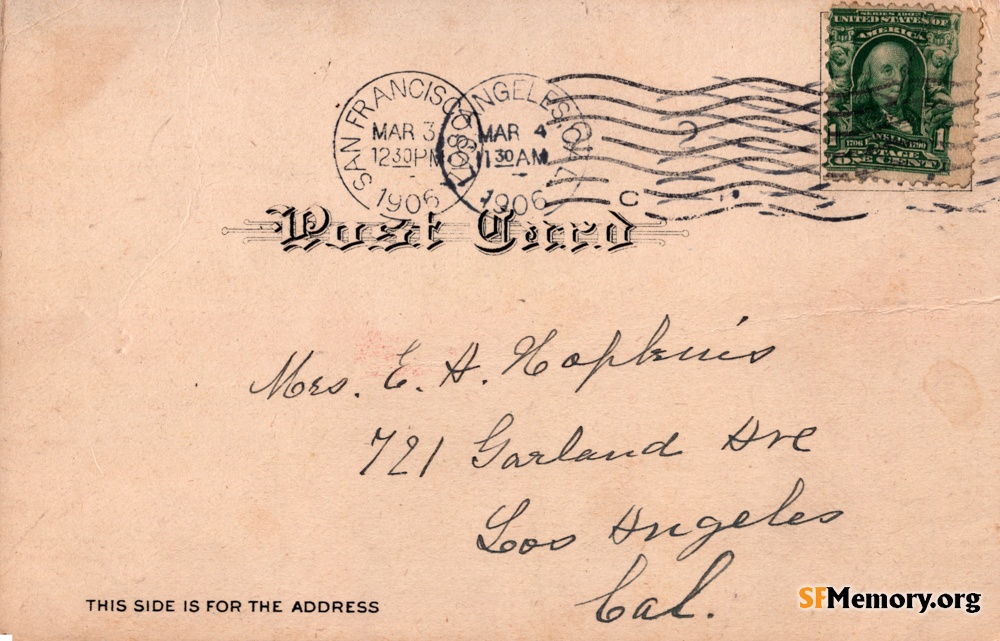 SERIES 1902
UNITED STATES OF
AMERICA
FRANKLIN
1706 1790
POSTAGE
1 1
ONE CENT
SAN FRANCISCO
MAR 3
12 30 PM
1906
LOS ANGELES, CAL.
MAR 4
1 30 AM
1906
2
C
Post Card
Mrs. E. A. Hopkins
721 Garland Ave
Los Angeles
Cal.
THIS SIDE IS FOR THE ADDRESS
SFMemory.org